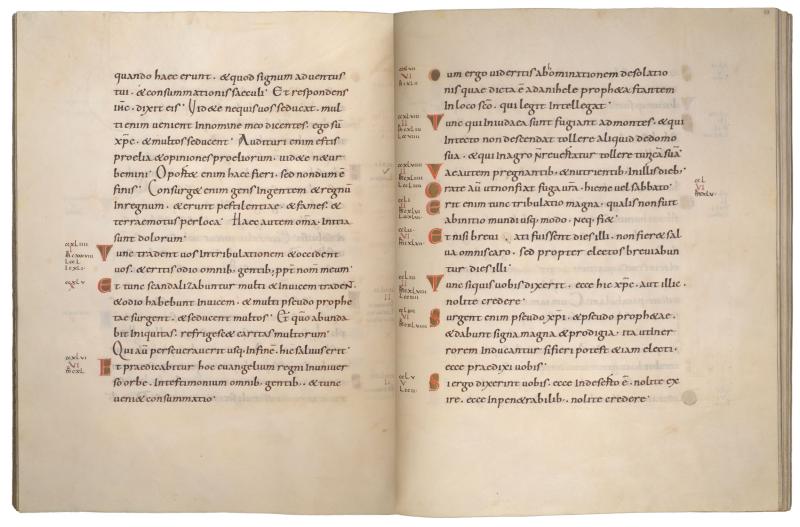 quando haec erunt. & quod signum aduentus
tui. & consummationis saeculi. Et respondens
ihc. dixit eis. Uid&e nequis uos seducat. mul
ti enim uenient Innomine meo dicentes. ego sū
xpc. & multos seducent. Audituri enim estis
proelia & opiniones proeliorum. uid&e ne tur
bemini. Oport& enim haec fieri. sed nondum ē
finis. Consurg& enim gens Ingentem & regnū
Inregnum. & erunt pestilentiae. & fames. &
terraemotus per loca. Haec autem oma. Initia
sunt dolorum.
Tunc tradent uos Intribulationem & occident
uos. & eritis odio omnib; gentib; ppt nom meum.
Et tunc scandalizabuntur multi & Inuicem traden
& odio habebunt Inuicem. & multi pseudo prophe
tae surgent. & seducent multos. Et qūo abunda
bit Iniquitas. refrigesc& caritas multorum.
Qui aū perseuerauerit usq; Infinē. hic saluus erit.
Et praedicabitur hoc euangelium regni Inuniuer
so orbe. Intestimonium omnib; gentib;. & tunc
ueni& consummatio.
Cum ergo uideritis abhominationem desolatio
nis quae dicta ē adanihele proph&a stantem
In loco sco. qui legit Intellegat.
Tunc qui Iniudaea sunt fugiant admontes. & qui
Intecto non descendat tollere aliquid dedomo
sua. & qui Inagro n reuertatur tollere tunicā suā.
Uae autem pregnantib; & nutrientib; Inillis dieb;
Orate aū ut non fiat fuga urā. hieme uel sabbato.
Erit enim tunc tribulatio magna. qualis non fuit
abinitio mundi usq; modo. Neq; fi&.
Et nisi breui ati fuissent dies illi. non fier& sal
ua omnis caro. sed propter electos breuiabun
tur dies illi.
Tunc siquis uobis dixerit. ecce hic xpc. aut illic.
nolite credere.
Surgent enim pseudo xpi. & pseudo proph&ae.
& dabunt signa magna & prodigia. ita ut Iner
rorem Inducantur si fieri potest &iam electi.
ecce praedixi uobis.
Si ergo dixerint uobis. ecce Indeserto ē. nolite ex
ire. ecce Inpen&rabilib;. nolite credere.